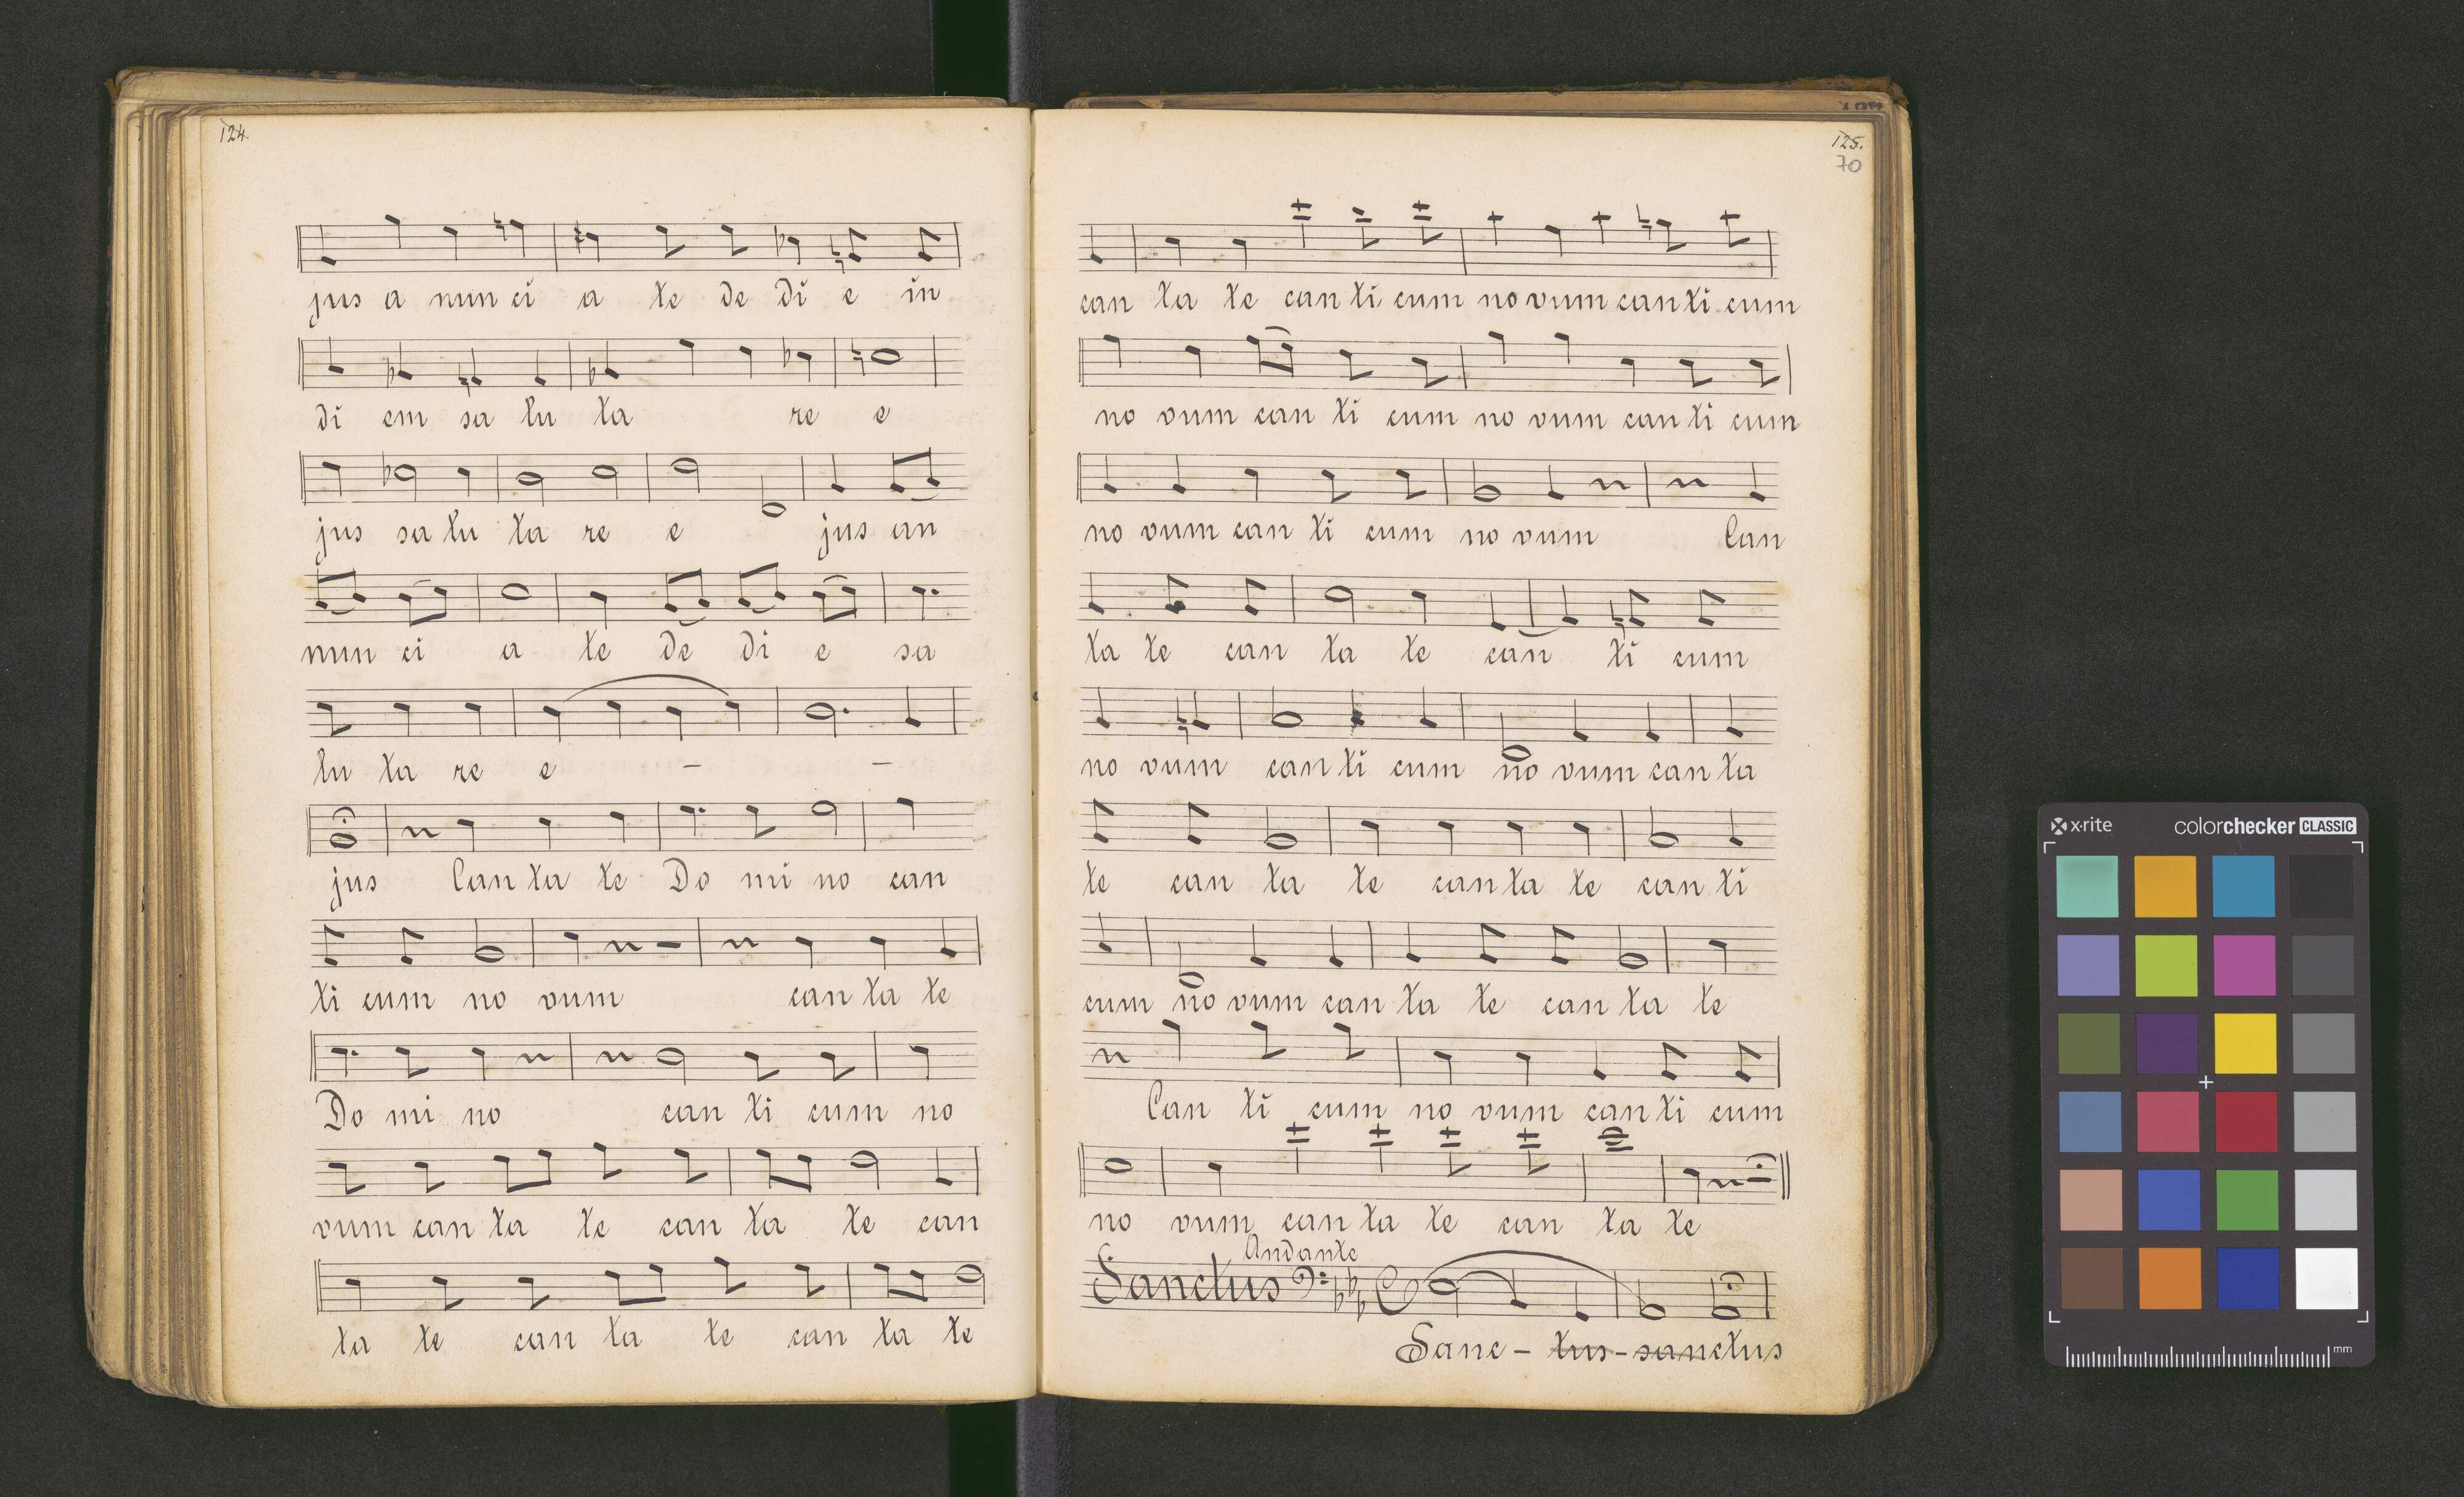 124.
jus a nun ci a te de di e in
di em sa lu ta re e
jus sa lu ta re e jus an
nun ci a te de di e sa
lu ta re e – –
jus Can ta te Do mi no can
ti cum no vum can ta te
Do mi no can ti cum no
vum can ta te can ta te can
ta te can ta te can ta te
125.
70
can ta te can ti cum no vum can ti cum
no vum can ti cum no vum can ti cum
no vum can ti cum no vum Can
ta te can ta te can ti cum
no vum can ti cum no vum can ta
te can ta te can ta te can ti
cum no vum can ta te can ta te
Can ti cum no vum can ti cum
no vum can ta te can ta te
Andante
Sanctus
Sanc - tus - sanctus
x·rite colorchecker CLASSIC
mm